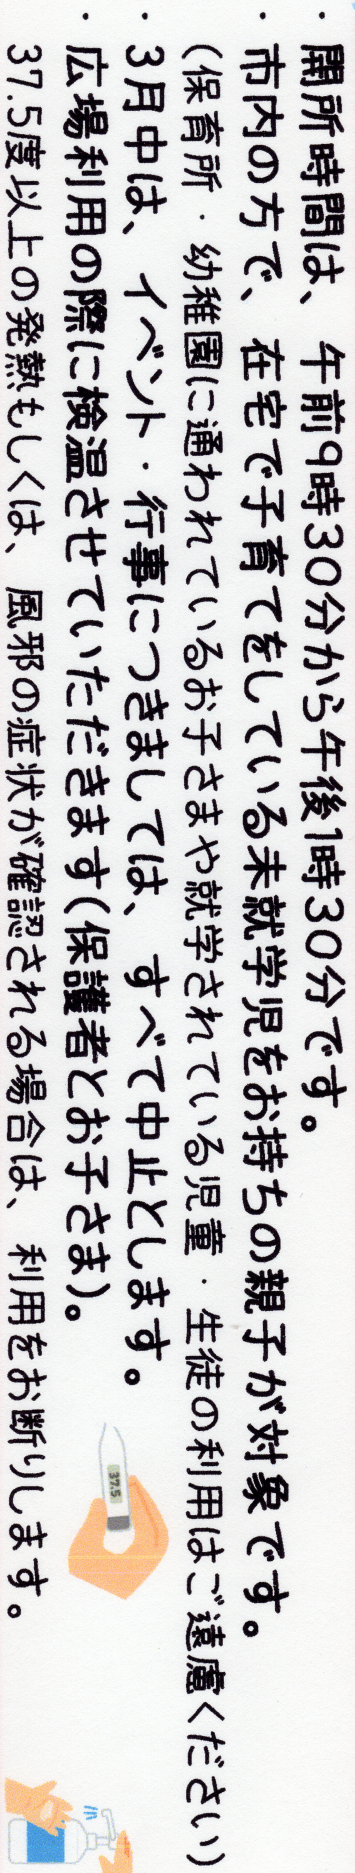 ・開所時間は、午前9時30分から午後1時30分です。
・市内の方で、在宅で子育てをしている未就学児をお持ちの親子が対象です。
(保育所・幼稚園に通われているお子さまや就学されている児童・生徒の利用はご遠慮ください)
・3月中は、イベント・行事につきましては、すべて中止とします。
・広場利用の際に検温させていただきます(保護者とお子さま)。
37.5度以上の発熱もしくは、風邪の症状が確認される場合は、利用をお断りします。
37.5